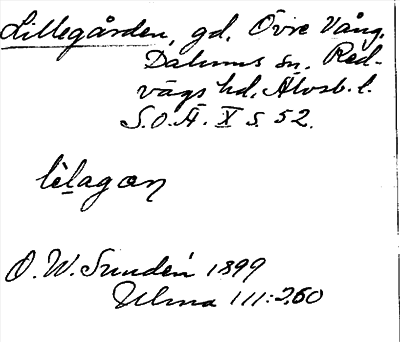 Lillegården, gd. Övre Vång.
Dalums sn. Red-
vägs hd. Älvsb. l.
S.O.Ä. X S. 52.
lelagan
O. W. Sundén 1899
Ulma 111:260